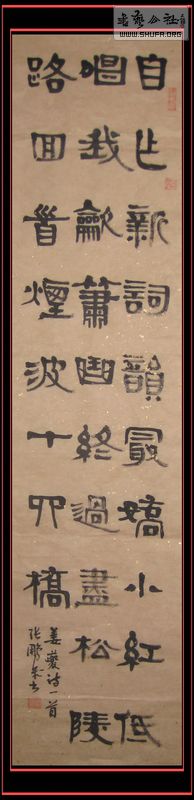 書藝公社
WWW.SHUFA.ORG
自乍新詞韻最嬌小紅低
唱我龡簫曲終過盡松陵
路回首煙波十四橋
姜夔诗一首
张鹏